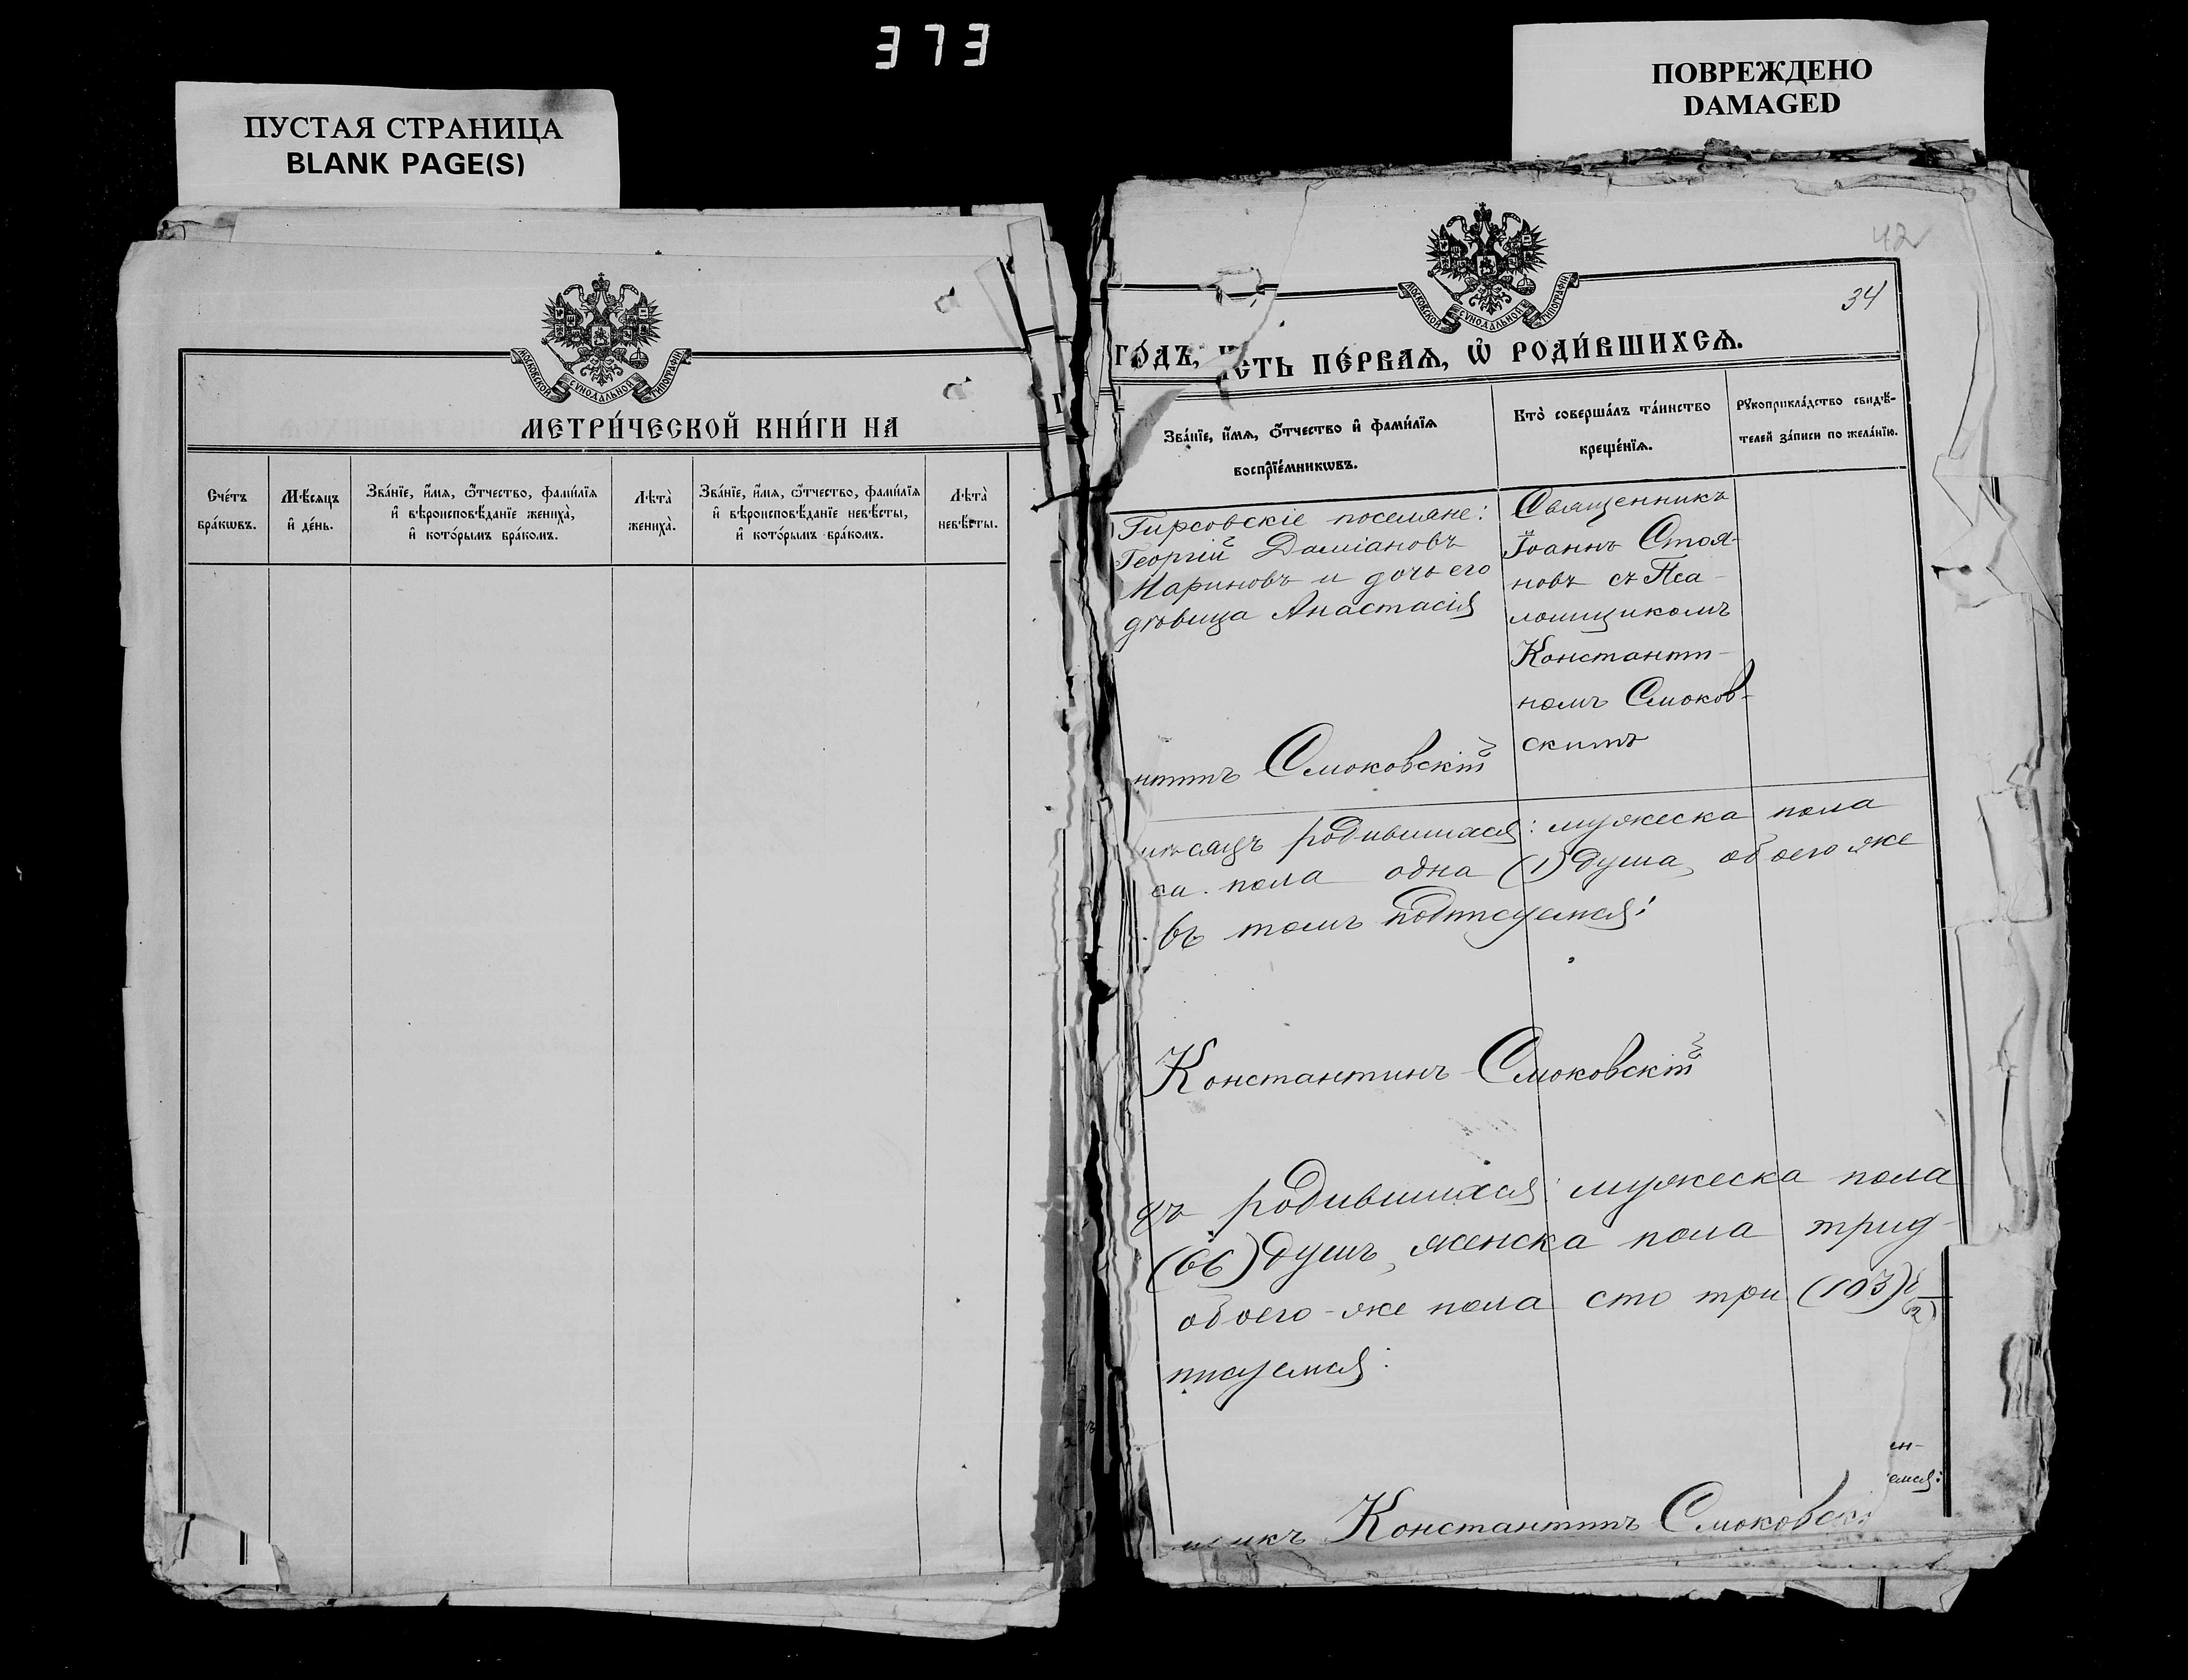 373
ПУСТАЯ СТРАНИЦА
BLANK PAGE(S)
ПОВРЕЖДЕНО
DAMAGED
МОСКОВСКОЙ СѴНОДАЛЬНОЙ ТИПОГРАФІИ
МЕТРИ́ЧЕСКОЙ КНИ́ГИ НА
Сче́тъ
бра́кѡвъ.
Мѣ́сѧцъ
и҆ де́нь.
Зва́нїе, и҆́мѧ, ѻ҆́тчество, фами́лїѧ
и҆ вѣроисповѣ́данїе жениха̀,
и҆ кото́рымъ бра́комъ.
Лѣта̀
жениха̀.
Зва́нїе, и҆́мѧ, ѻ҆́тчество, фами́лїѧ
и҆ вѣроисповѣ́данїе невѣ́сты,
и҆ кото́рымъ бра́комъ.
Лѣта̀
невѣ́сты.
42
34
МОСКОВСКОЙ СѴНОДАЛЬНОЙ ТИПОГРАФІИ
ГО́ДЪ, ЧСТЬ ПЕ́РВАѦ, Ѡ҆ РОДИ́ВШИХСѦ.
Зва́нїе, и҆́мѧ, ѻ҆́тчество и҆ фами́лїѧ
воспрїе́мникѡвъ.
Кто̀ соверша́лъ та́инство
креще́нїѧ.
Рꙋкоприкла́дство свидѣ́-
телей за́писи по жела́нїю.
Гирсовскіе поселяне:
Георгій Даміановъ
Мариновъ и дочь его
дѣвица Анастасія
Священникъ
Іоаннъ Стоя-
новъ съ Пса-
ломщикомъ
Константи-
номъ Смоков-
скимъ
нтинъ Смоковскій
мѣсяцъ родившихся: мужеска пола
ска пола одна (1) душа, обоего же
въ томъ подписуемся:
Константинъ Смоковскій
дъ родившихся: мужеска пола
(66) душъ, женска пола трид-
обоего-же пола сто три (103)
писуемся:
ен-
емся:
щикъ Константинъ Смоковскі